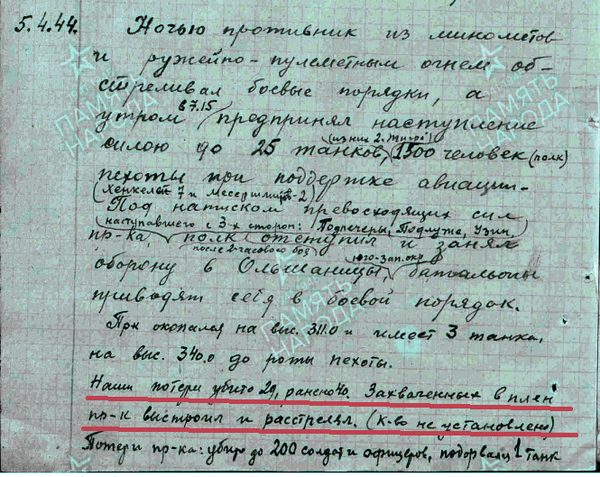 5.4.44. Ночью противник из минометов
и ружейно-пулеметным огнем об-
стреливал боевые порядки, а
в 7.15
утром предпринял наступление
(из них 2 "Тигра")
силою до 25 танков, 1500 человек (полк)
пехоты при поддержке авиации.
(Хенкелей 7 и Мессершмитт-2)
Под натиском превосходящих сил
наступавшего с 3-х сторон: Подпечеры, Подлуже, Узин,
пр-ка, полк отступил и занял
после 2-часового боя юго-зап. окр
оборону в Ольшаницы, батальоны
приводят себя в боевой порядок.
Пр-к окопался на выс. 311.0 и имеет 3 танка,
на выс. 340.0 до роты пехоты.
Наши потери убито 29, ранено 40. Захваченных в плен
пр-к выстроил и расстрелял. (К-во не установлено)
Потери пр-ка: убито до 200 солдат и офицеров, подорвался 1 танк
ПАМЯТЬ
НАРОДА
ПАМЯТЬ
НАРОДА
ПАМЯТЬ
НАРОДА